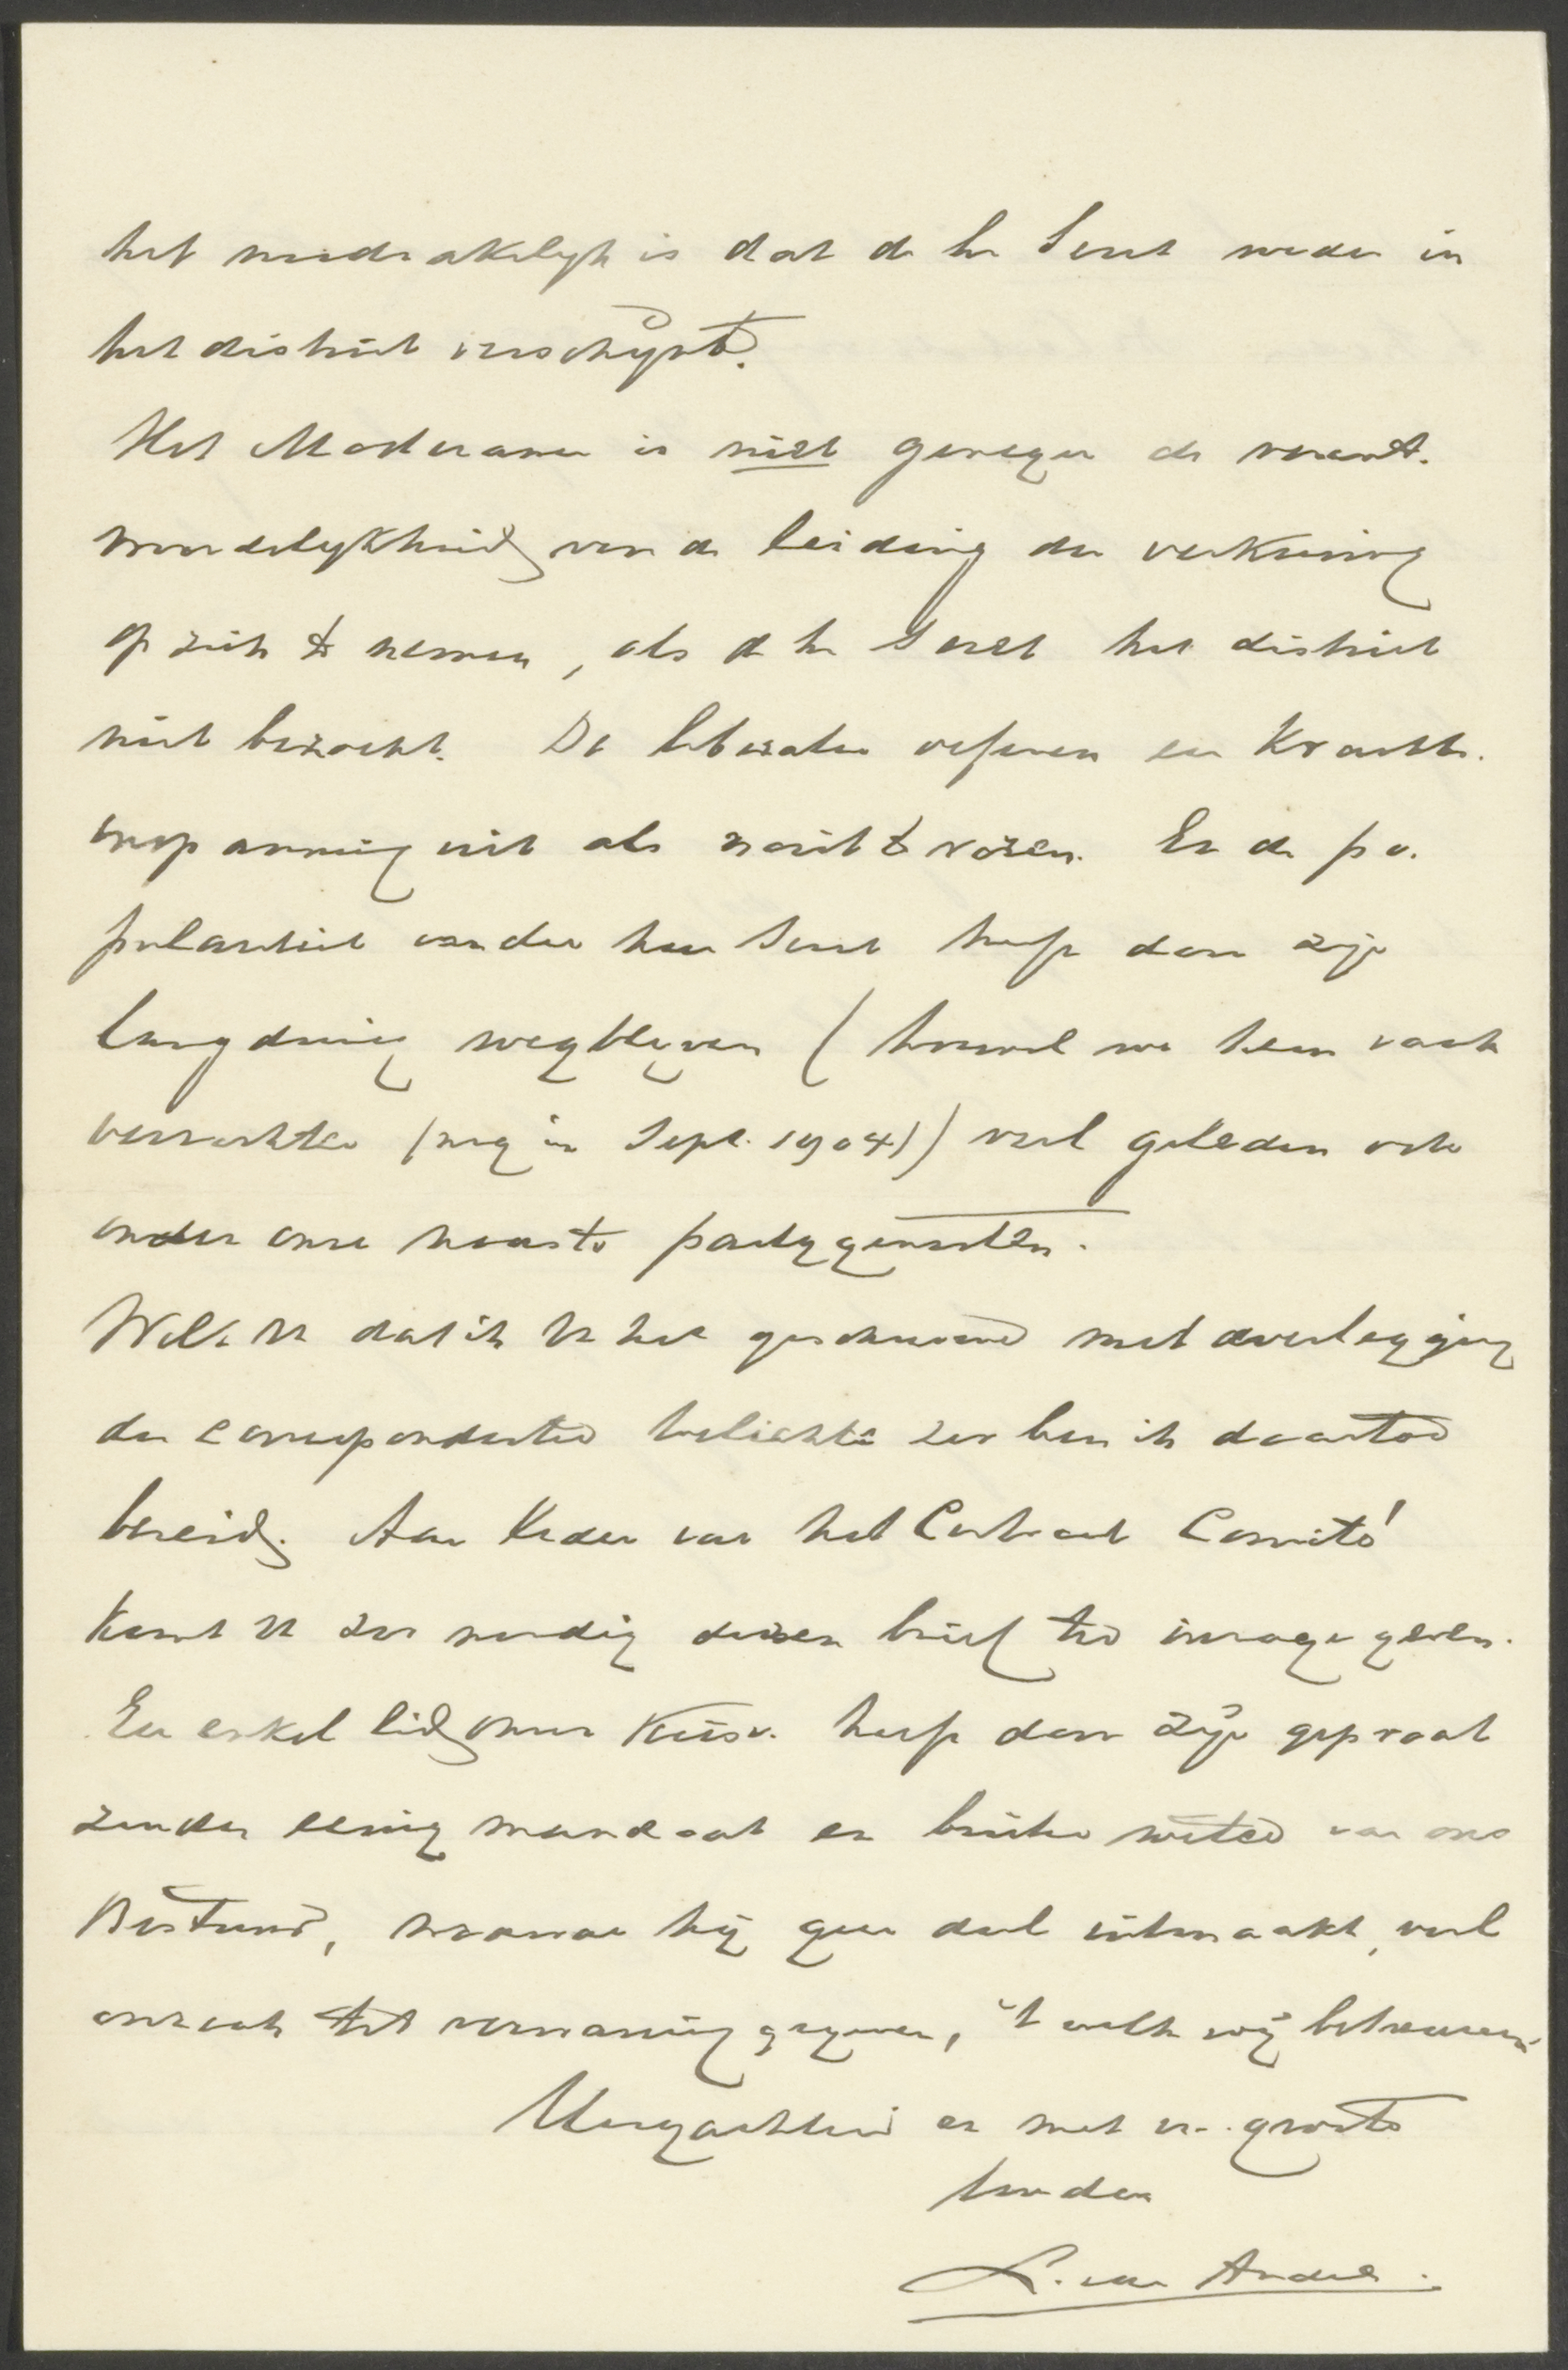 het noodzakelijk is dat de hr Seret weder in
het district verschijnt.
Het Moderamen is niet genegen de verant-
woordelijkheid van de leiding der verkiezing
op zich te nemen, als de hr Seret het district
niet bezoekt. De liberalen oefenen een krachts-
inspanning uit als nooit te voren. En de po-
pulariteit van den heer Seret heeft door zijn
langdurig wegblijven (hoewel we hem vaak
verwachtten (nog in Sept. 1904)) veel geleden ook
onder onze naaste partijgenooten.
Wilt U dat ik U het geschrevene met overlegging
der correspondentie toelichte zoo ben ik daartoe
bereid. Aan leden van het Centraal Comité
kunt U zoo noodig dezen brief ter inzage geven.
Een enkel lid onzer Kiesv. heeft door zijn gepraat
zonder eenig mandaat en buiten weten van ons
Bestuur, waarvan hij geen deel uitmaakt, veel
oorzaak tot verwarring gegeven, 't welk wij betreuren.
Hoogachtend en met vr. groete
L. van Andel.